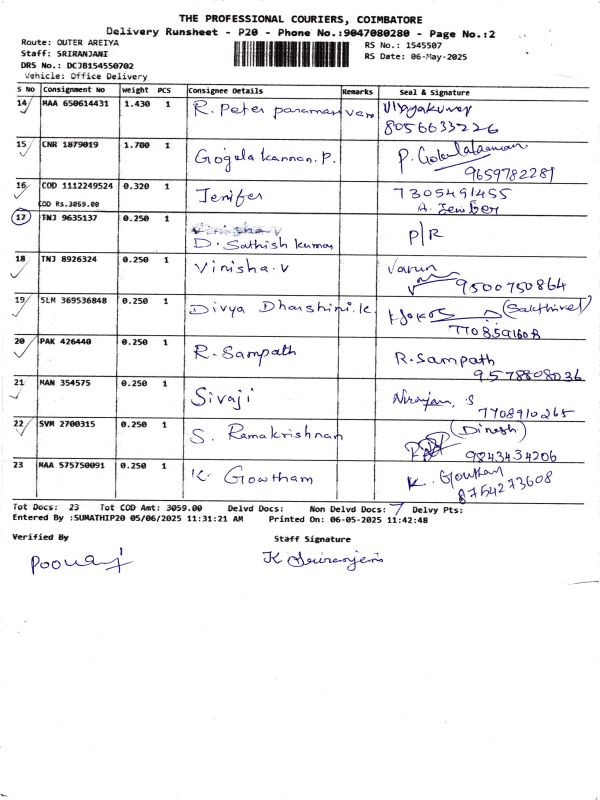 THE PROFESSIONAL COURIERS, COIMBATORE
Delivery Runsheet - P20 - Phone No.:9047080280 - Page No.:2
Route: OUTER AREIYA
Staff: SRIRANJANI
DRS No.: DCJB154550702
Vehicle: Office Delivery
RS No.: 1545507
RS Date: 06-May-2025
S No Consignment No Weight PCS Consignee Details Remarks Seal & Signature
14 MAA 650614431 1.430 1 R. Peter paramasivam Vijayakumar
8056633226
15 CNR 1879019 1.700 1 Gogula kannan. P.
9659782281
16 COD 1112249524 0.320 1 Jenifer 7305491455
COD RS.3059.00 A. Jenifer
17 TNJ 9635137 0.250 1 Vinisha V
D. Sathish kumar P/R
18 TNJ 8926324 0.250 1 Vinisha. V Varun
9500750864
19 SLM 369536848 0.250 1 Divya Dharshini. K. (Sakthivel)
20 PAK 426440 0.250 1 R. Sampath R. Sampath
9578808036
21 MAN 354575 0.250 1 Sivaji Niranjan. S
7708910265
22 SVM 2700315 0.250 1 S. Ramakrishnan (Dinesh)
9843434206
23 MAA 575750091 0.250 1 K. Gowtham K. Gowtham
8754273608
Tot Docs: 23 Tot COD Amt: 3059.00 Delvd Docs: Non Delvd Docs: 7 Delvy Pts:
Entered By :SUMATHIP20 05/06/2025 11:31:21 AM Printed On: 06-05-2025 11:42:48
Verified By Staff Signature
K Sriranjani